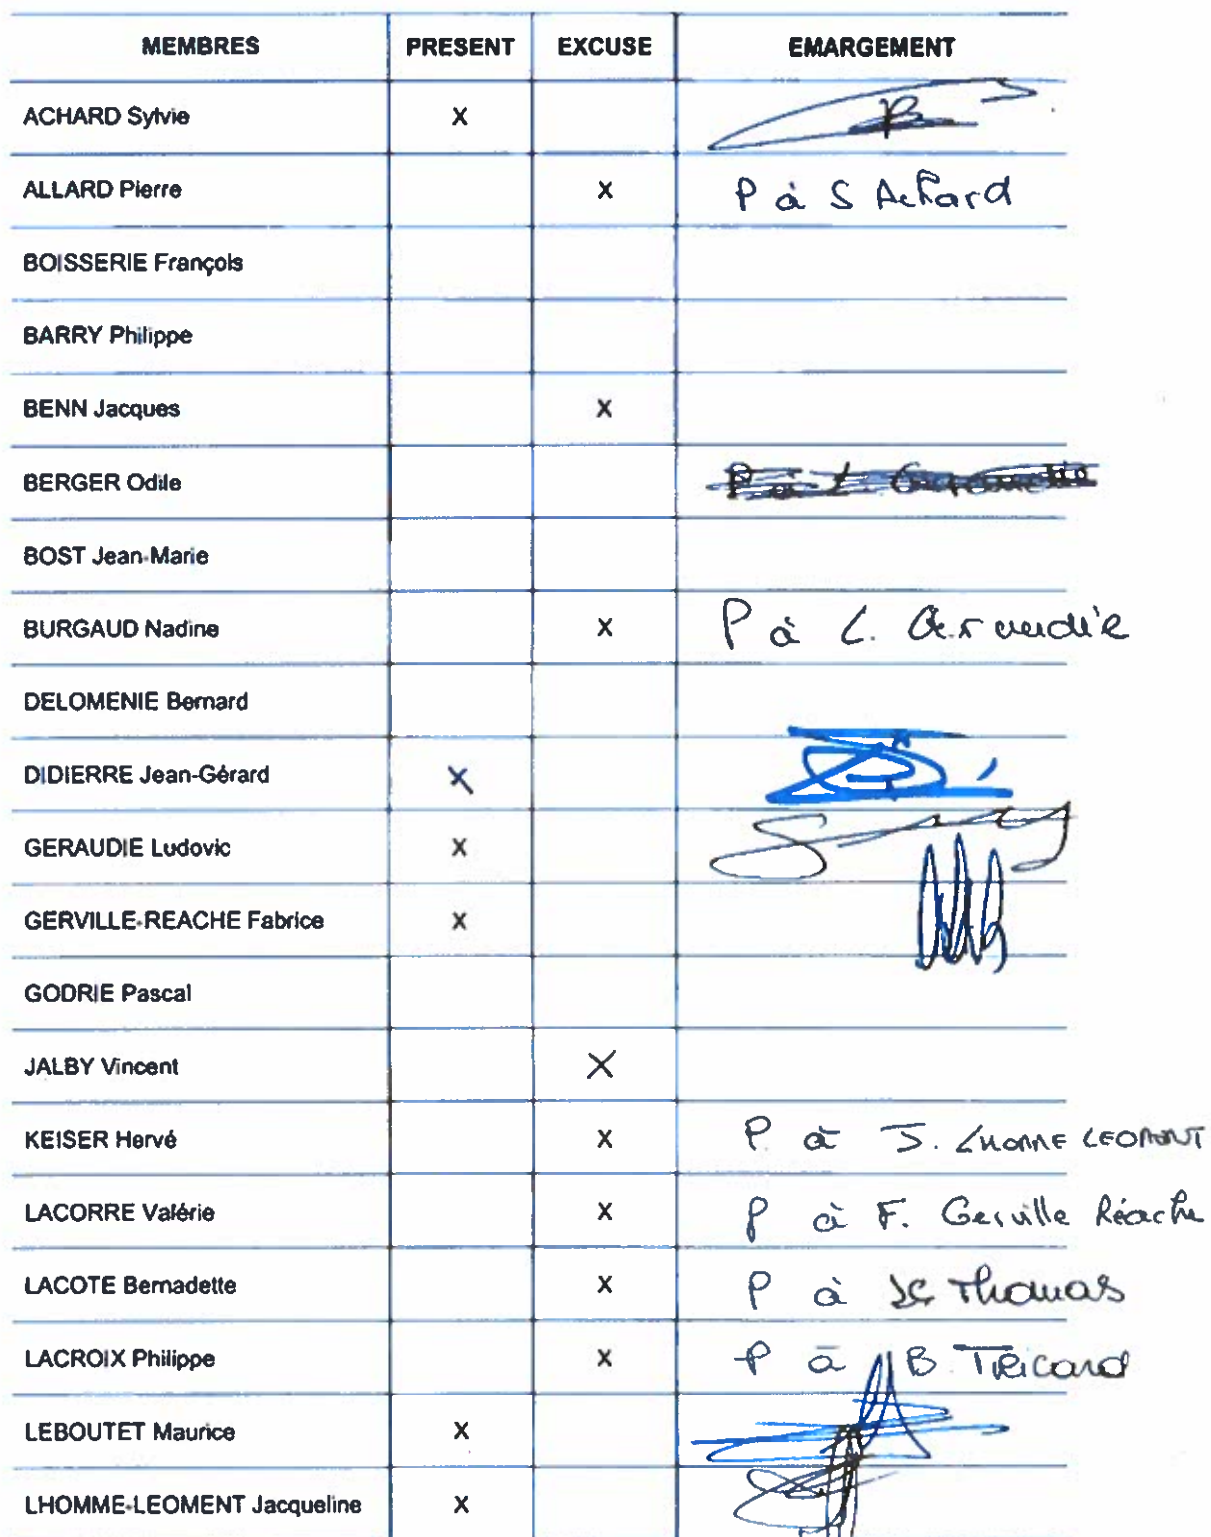 MEMBRES PRESENT EXCUSE EMARGEMENT
ACHARD Sylvie X
ALLARD Pierre X P à S Achard
BOISSERIE François
BARRY Philippe
BENN Jacques X
BERGER Odile
BOST Jean-Marie
BURGAUD Nadine X P à L. Geraudie
DELOMENIE Bernard
DIDIERRE Jean-Gérard X
GERAUDIE Ludovic X
GERVILLE-REACHE Fabrice X
GODRIE Pascal
JALBY Vincent X
KEISER Hervé X P à J. LHOMME LEOMENT
LACORRE Valérie X P à F. Gerville Réache
LACOTE Bernadette X P à JC Thomas
LACROIX Philippe X P à B TRicard
LEBOUTET Maurice X
LHOMME-LEOMENT Jacqueline X